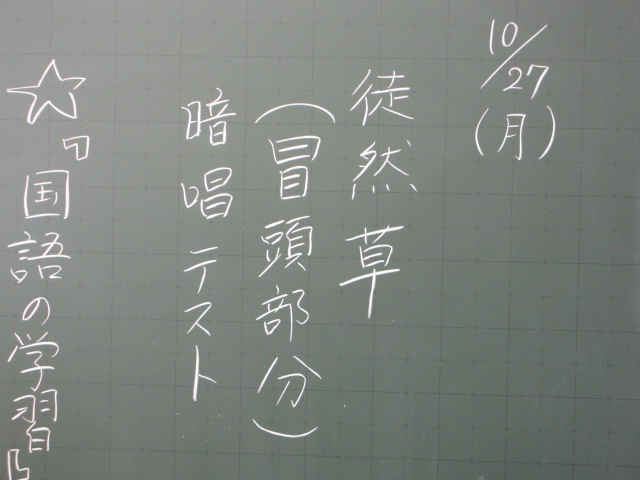 10/27
(月)
徒然草
(冒頭部分)
暗唱テスト
☆『国語の学習』